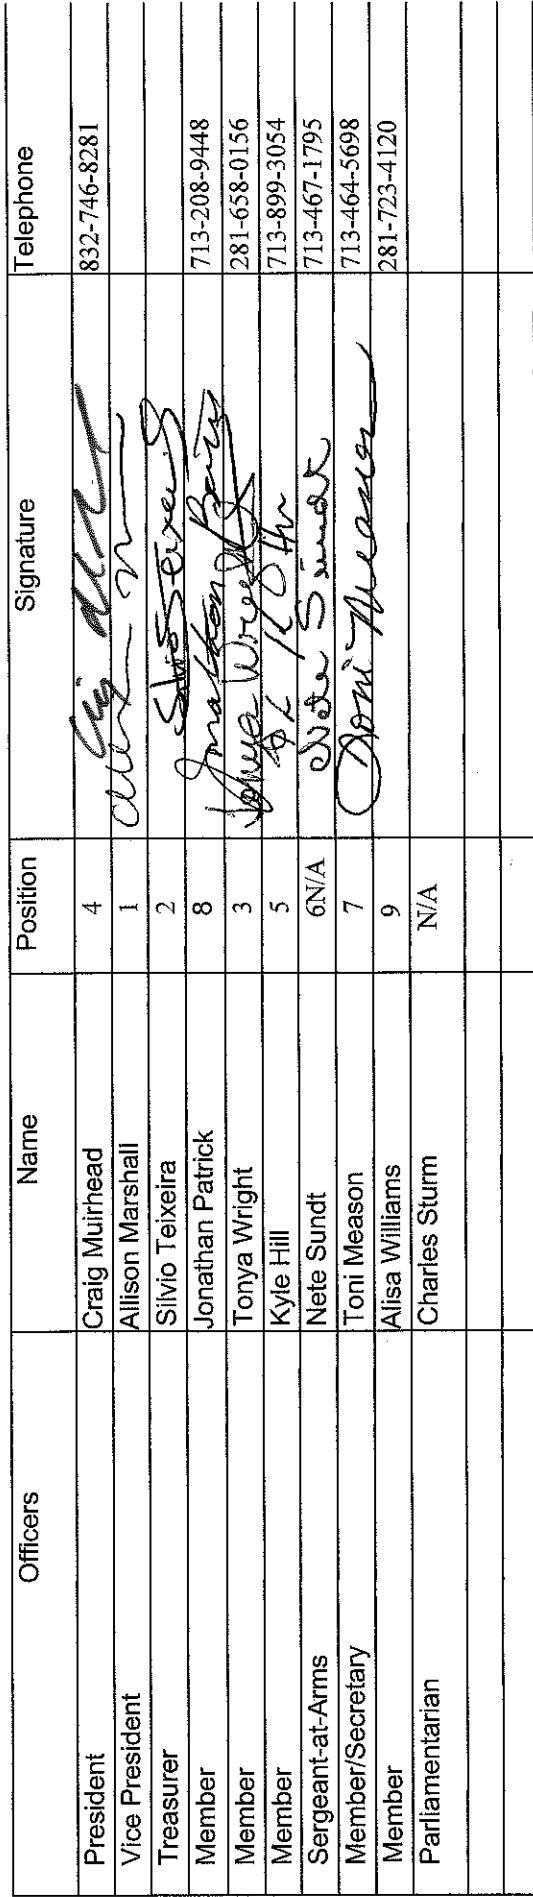 Officers Name Position Signature Telephone
President Craig Muirhead 4 Craig 832-746-8281
Vice President Allison Marshall 1
Treasurer Silvio Teixeira 2 Silvio Teixeira
Member Jonathan Patrick 8 Jonathan 713-208-9448
Member Tonya Wright 3 Tonya Wright 281-658-0156
Member Kyle Hill 5 713-899-3054
Sergeant-at-Arms Nete Sundt 6N/A Nete Sundt 713-467-1795
Member/Secretary Toni Meason 7 Toni Meason 713-464-5698
Member Alisa Williams 9 281-723-4120
Parliamentarian Charles Sturm N/A